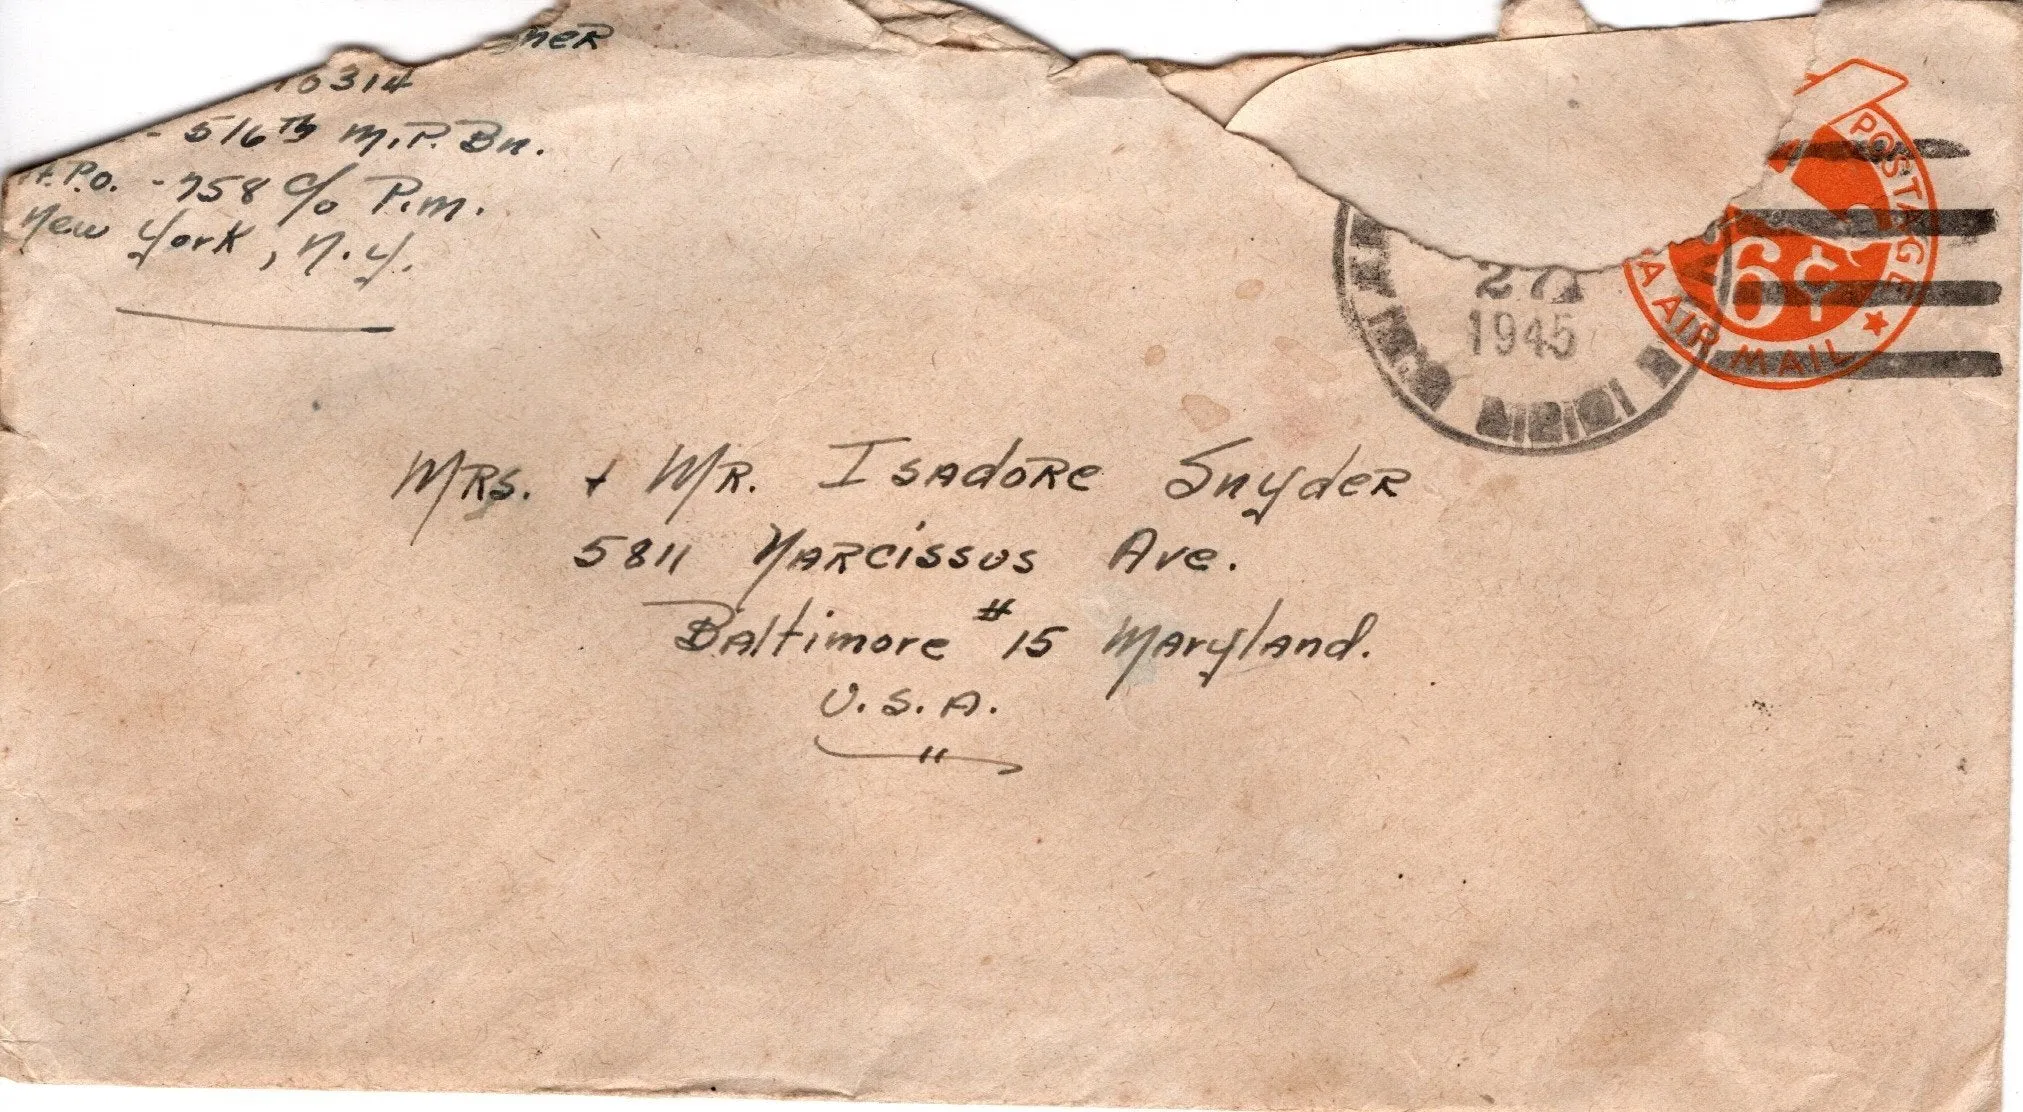 10314
- 516th M.P. Bn.
A.P.O. - 758 c/o P.M.
New York, N.Y.
27
1945
POSTAGE
6¢
AIR MAIL
Mrs. + Mr. Isadore Snyder
5811 Narcissus Ave.
Baltimore # 15 Maryland.
U.S.A.